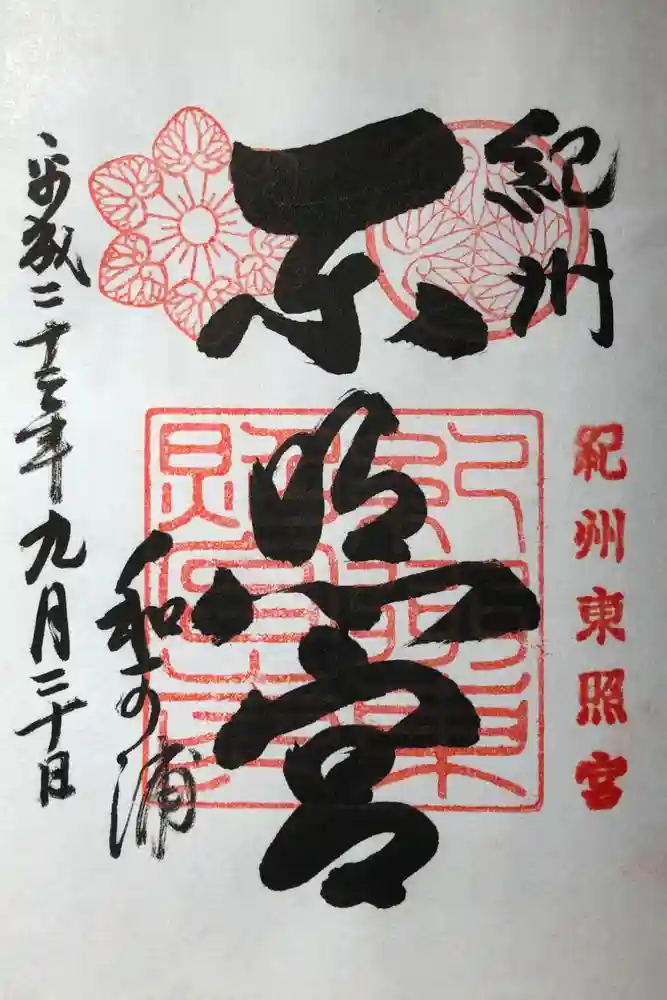 紀州東照宮
紀州
東照宮
和の浦
平成二十三年九月二十日